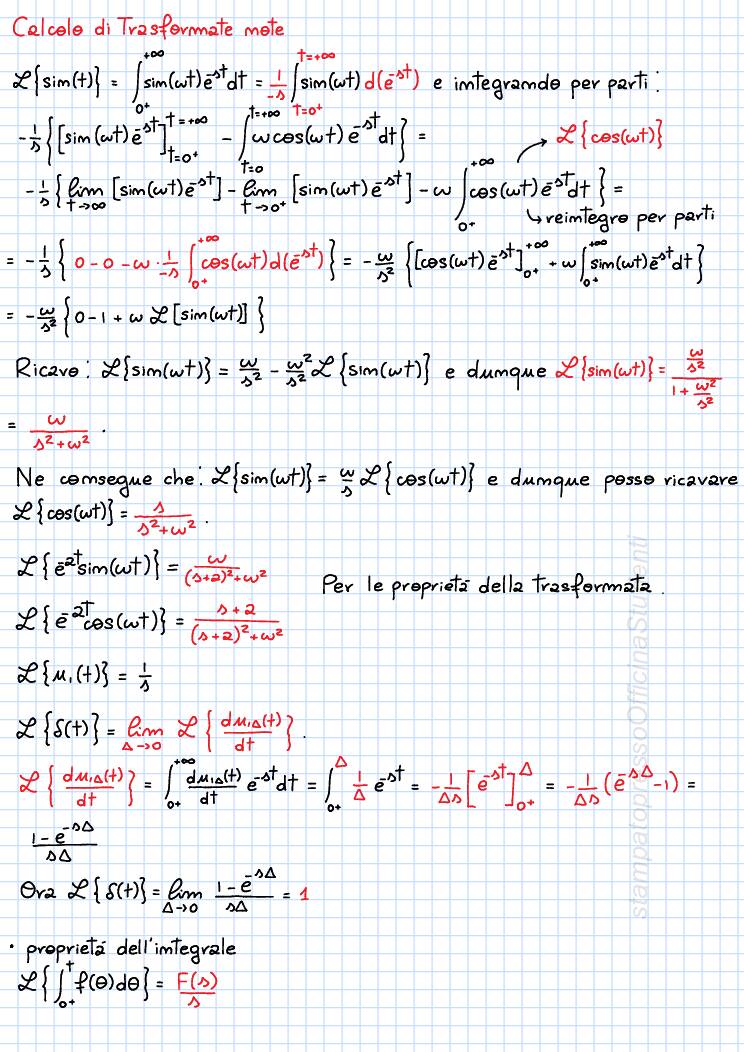 Calcolo di Trasformate note
ℒ{sin(t)} = ∫_{0⁺}^{+∞} sin(ωt) e^{-st} dt = 1/-s ∫_{t=0⁺}^{t=+∞} sin(ωt) d(e^{-st}) e integrando per parti:
-1/s {[sin(ωt) e^{-st}]_{t=0⁺}^{t=+∞} - ∫_{t=0}^{t=+∞} ω cos(ωt) e^{-st} dt} = → ℒ{cos(ωt)}
-1/s {lim_{t→∞} [sin(ωt) e^{-st}] - lim_{t→0⁺} [sin(ωt) e^{-st}] - ω ∫_{0⁺}^{+∞} cos(ωt) e^{-st} dt} =
↳ reintegro per parti
= -1/s {0 - 0 - ω · 1/-s ∫_{0⁺}^{+∞} cos(ωt) d(e^{-st})} = -ω/s² {[cos(ωt) e^{-st}]_{0⁺}^{+∞} + ω ∫_{0⁺}^{+∞} sin(ωt) e^{-st} dt}
= -ω/s² {0 - 1 + ω ℒ[sin(ωt)]}
Ricavo: ℒ{sin(ωt)} = ω/s² - ω²/s² ℒ{sin(ωt)} e dunque ℒ{sin(ωt)} = (ω/s²)/(1 + ω²/s²)
= ω/(s² + ω²) .
Ne consegue che: ℒ{sin(ωt)} = ω/s ℒ{cos(ωt)} e dunque posso ricavare
ℒ{cos(ωt)} = s/(s² + ω²) .
ℒ{e^{-2t} sin(ωt)} = ω/((s+2)² + ω²)
Per le proprietá della trasformata .
ℒ{e^{-2t} cos(ωt)} = (s+2)/((s+2)² + ω²)
ℒ{u₁(t)} = 1/s
ℒ{δ(t)} = lim_{Δ→0} ℒ{du_{1Δ}(t)/dt} .
ℒ{du_{1Δ}(t)/dt} = ∫_{0⁺}^{+∞} du_{1Δ}(t)/dt e^{-st} dt = ∫_{0⁺}^{Δ} 1/Δ e^{-st} = -1/Δs [e^{-st}]_{0⁺}^{Δ} = -1/Δs (e^{-sΔ} - 1) =
(1 - e^{-sΔ})/sΔ
Ora ℒ{δ(t)} = lim_{Δ→0} (1 - e^{-sΔ})/sΔ = 1
• proprietá dell'integrale
ℒ{∫_{0⁺}^{t} f(θ)dθ} = F(s)/s
stampatopressoOfficinaStudenti